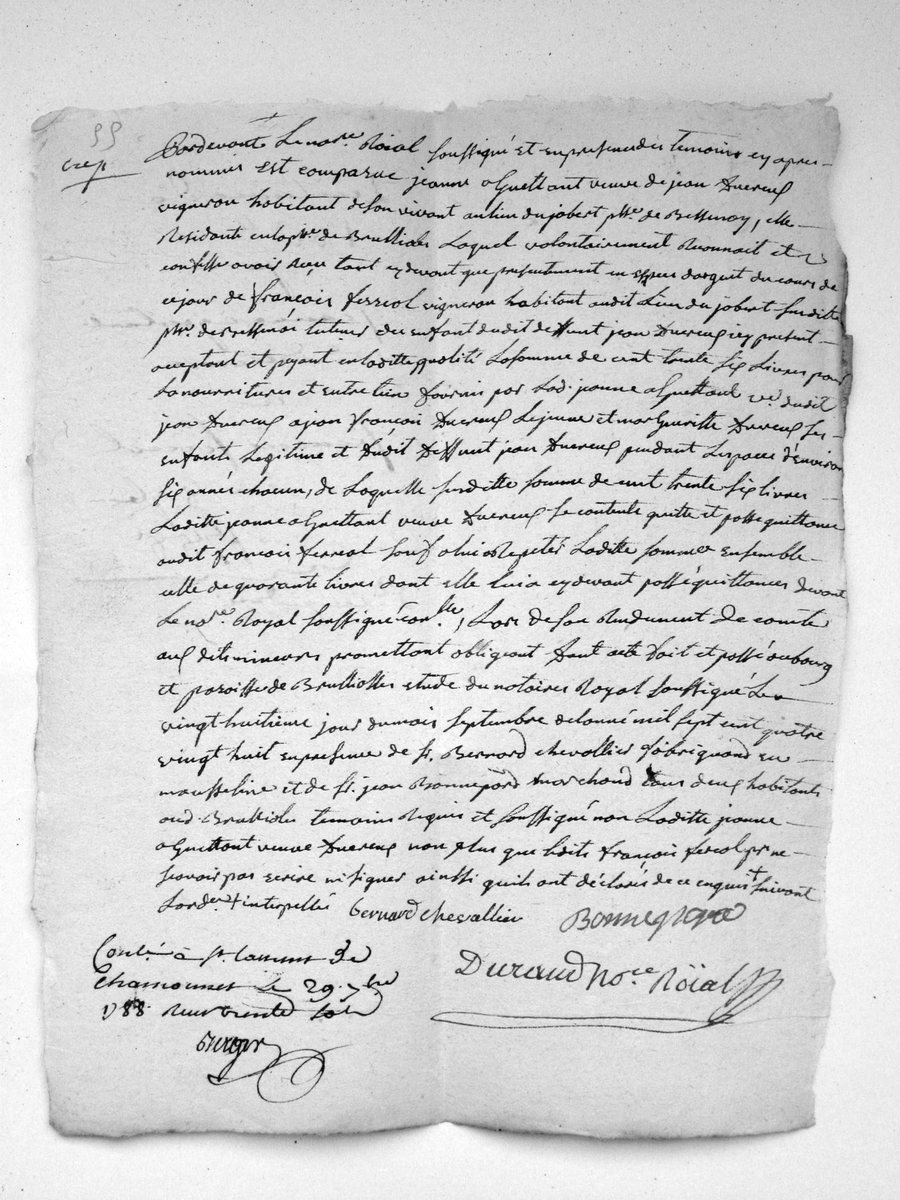 55
Pardevant Le no.re Roial soussigné et en presence des temoins cy apres
nommés est comparue jeanne aguettant veuve de jean Duereux
vigneron habitant de son vivant au lieu du jobert p.sse de Bessenay, elle
Residante en la p.sse de Brullioles Laquel volontairement Reconnait et
confesse avoir Reçu tant cy devant que presentement en especes d'argent du cours de
ce jour de françois ferreol vigneron habitant audit Lieu du jobert susditte
p.sse de Bessenai tuteur des enfant dudit deffunt jean Duereux icy present
acceptant et payant en laditte qualité La somme de cent trente six Livres pour
La nourritures et entretien fournis par Lad. jeanne aguettant v.e dudit
jean Duereux a jean françois Duereux Lejeune et margueritte Duereux ses
enfants Legitime et Dudit Deffunt jean Duereux pendant L'espace d'environ
six année chacun, de Laquelle susditte somme de cent trente six livres
Laditte jeanne aguettant veuve Duereux se contente quitte et passe quittance
audit françois ferreol sauf a lui de Repeter Laditte somme ensemble
celle de quarante livres dont elle lui a cy devant passé quittances devant
Le no.re Royal soussigné, Lors de son Rendument de comte
aux dits mineurs promettant obligeant Dont acte fait et passé au bourg
et paroisse de Brullioles etude du notaires Royal soussigné Le
vingt huitieme jour du mois Septembre de l'anné mil sept cent quatre
vingt huit en presence de s.r Bernard chevallier fabriquand en
mousseline et de s.r jean Bonnepard marchand tous deux habitants
aud. Brullioles temoins Requis et soussigné non Laditte jeanne
aguettant veuve Duereux non plus que ledit françois ferreol p.r ne
scavoir pas ecrire ni signer ainsi qu'ils ont déclarés de ce enquis + suivant
Lord.ce + interpellé bernard chevallier Bonnepard
Con.lé à st. laurent de
Chamousset le 29. 7bre
1788. Reçu trente sols
Durand No.re Roïal